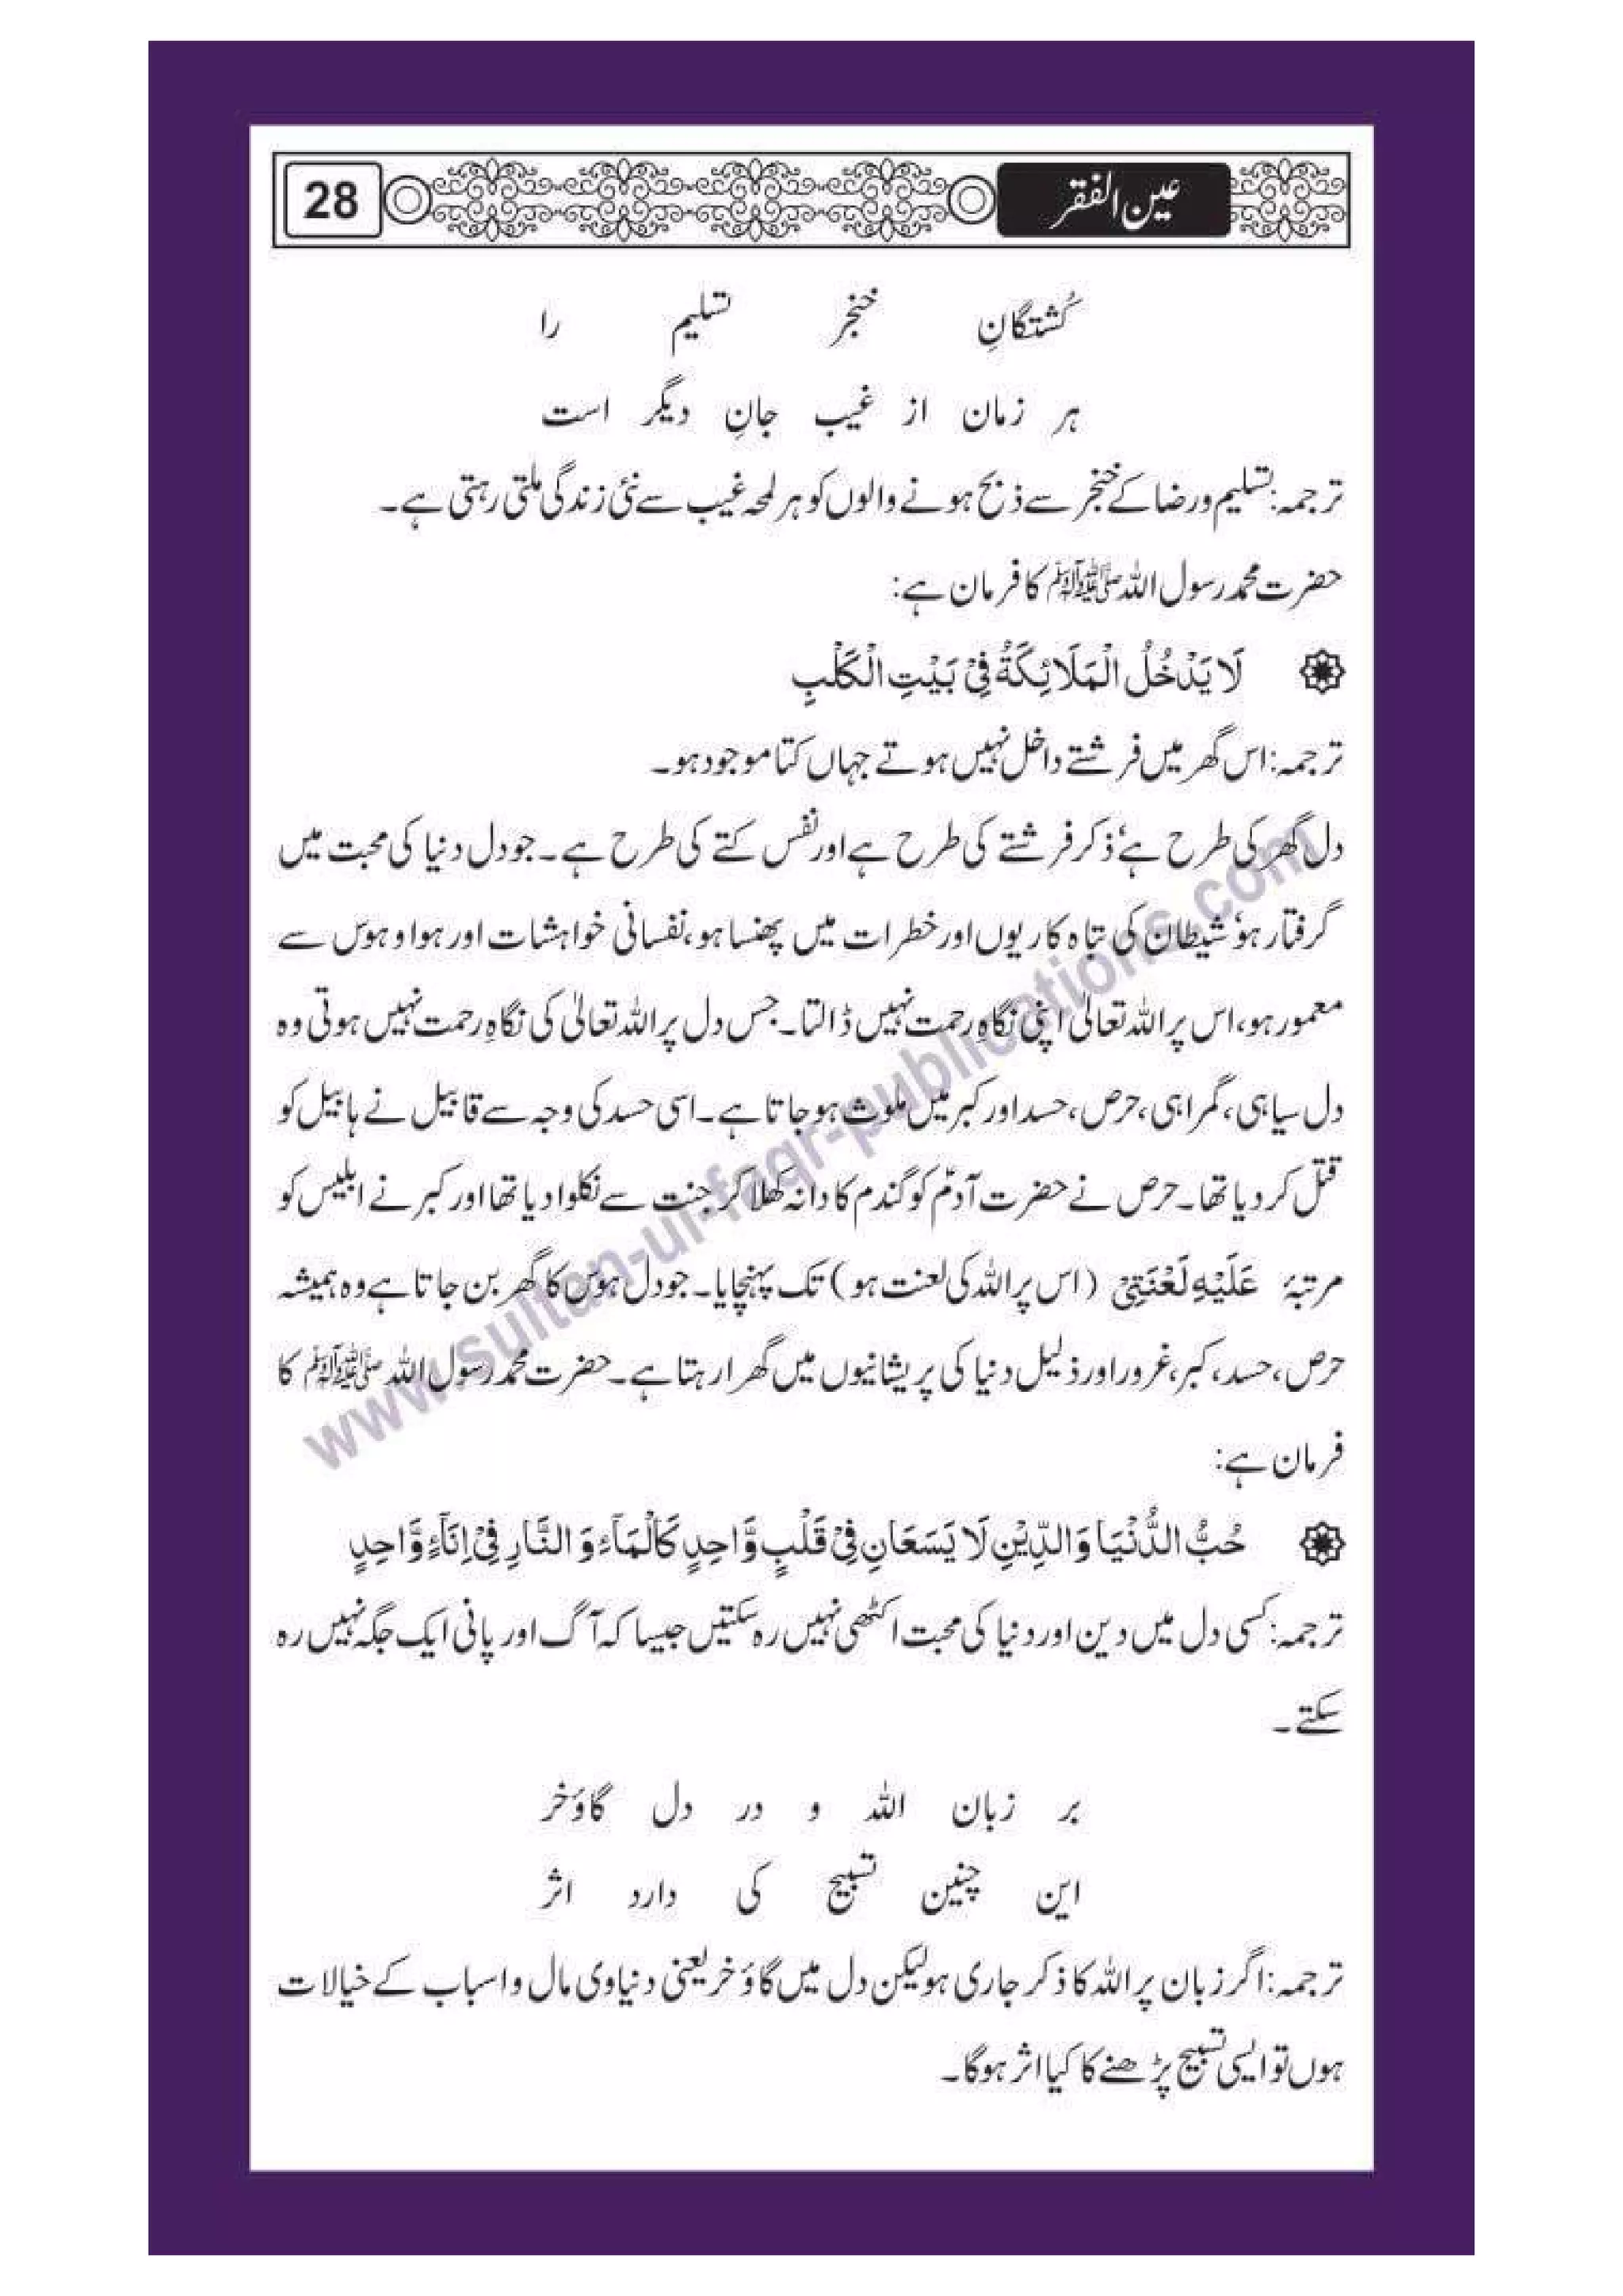 28
عین الفقر
کُشتگانِ خنجر تسلیم را
ہر زمان از غیب جانِ دیگر است
ترجمہ: تسلیم ورضا کے خنجر سے ذبح ہونے والوں کو ہر لمحہ غیب سے نئی زندگی ملتی رہتی ہے۔
حضرت محمد رسول اللہ ﷺ کا فرمان ہے:
لَا یَدْخُلُ الْمَلَائِکَۃُ فِیْ بَیْتِ الْکَلْبِ
ترجمہ: اس گھر میں فرشتے داخل نہیں ہوتے جہاں کتا موجود ہو۔
دل گھر کی طرح ہے' ذکر فرشتے کی طرح ہے اور نفس کتے کی طرح ہے۔ جو دل دنیا کی محبت میں
گرفتار ہو' شیطان کی تباہ کاریوں اور خطرات میں پھنسا ہو، نفسانی خواہشات اور ہوا و ہوس سے
معمور ہو، اس پر اللہ تعالیٰ اپنی نگاہِ رحمت نہیں ڈالتا۔ جس دل پر اللہ تعالیٰ کی نگاہِ رحمت نہیں ہوتی وہ
دل سیاہی، گمراہی، حرص، حسد اور کبر میں ملوث ہو جاتا ہے۔ اسی حسد کی وجہ سے قابیل نے ہابیل کو
قتل کر دیا تھا۔ حرص نے حضرت آدمؑ کو گندم کا دانہ کھلا کر جنت سے نکلوا دیا تھا اور کبر نے ابلیس کو
مرتبۂ عَلَیْہِ لَعْنَتِیْ (اس پر اللہ کی لعنت ہو) تک پہنچایا۔ جو دل ہوس کا گھر بن جاتا ہے وہ ہمیشہ
حرص، حسد، کبر، غرور اور ذلیل دنیا کی پریشانیوں میں گھرا رہتا ہے۔ حضرت محمد رسول اللہ ﷺ کا
فرمان ہے:
حُبُّ الدُّنْیَا وَ الدِّیْنِ لَا یَسَعَانِ فِیْ قَلْبٍ وَّاحِدٍ کَالْمَآءِ وَ النَّارِ فِیْ اِنَآءٍ وَّاحِدٍ
ترجمہ: کسی دل میں دین اور دنیا کی محبت اکٹھی نہیں رہ سکتیں جیسا کہ آگ اور پانی ایک جگہ نہیں رہ
سکتے۔
بر زبان اللہ و در دل گاؤخر
این چنین تسبیح کی دارد اثر
ترجمہ: اگر زبان پر اللہ کا ذکر جاری ہو لیکن دل میں گاؤخر یعنی دنیاوی مال و اسباب کے خیالات
ہوں تو ایسی تسبیح پڑھنے کا کیا اثر ہوگا۔
www.sultan-ul-faqr-publications.com